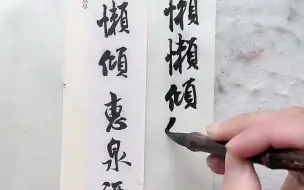 懶懶傾
懶傾惠泉